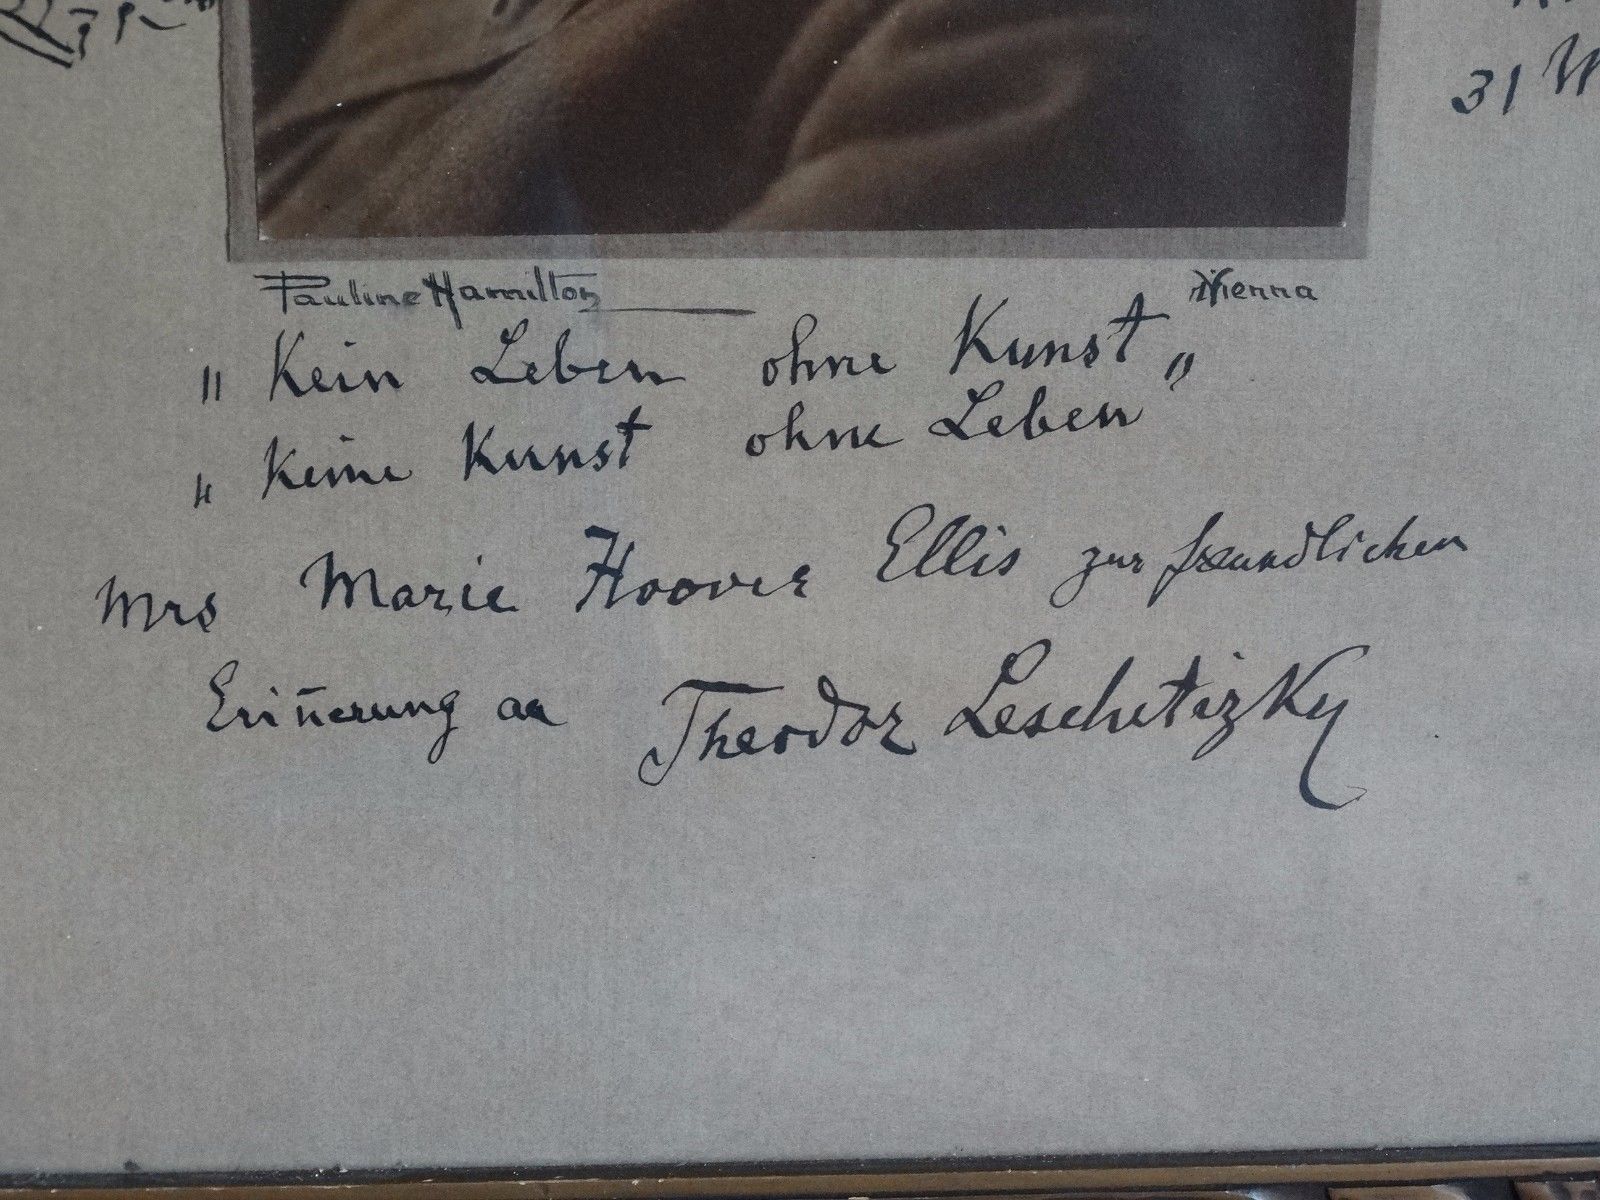 31
Pauline Hamilton Vienna
„ Kein Leben ohne Kunst „
„ Keine Kunst ohne Leben "
Mrs Marie Hoover Ellis zur freundlichen
Erin̄erung an Theodor Leschetizky